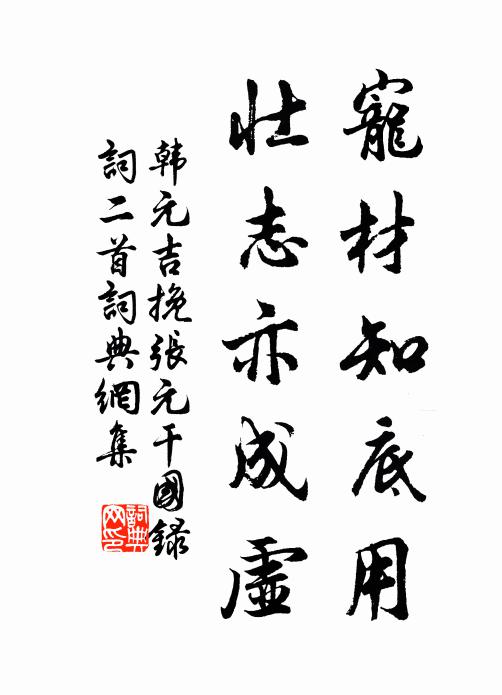 寵材知底用
壯志亦成虛
韩元吉挽張元干國錄
詞二首詞典網集
詞典
网印